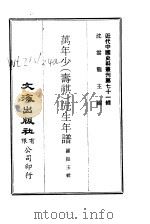 近代中國史料叢刊第七十一輯
沈雲龍主編
萬年少(壽祺)先生年譜
羅振玉輯
文海出版社有限公司印行